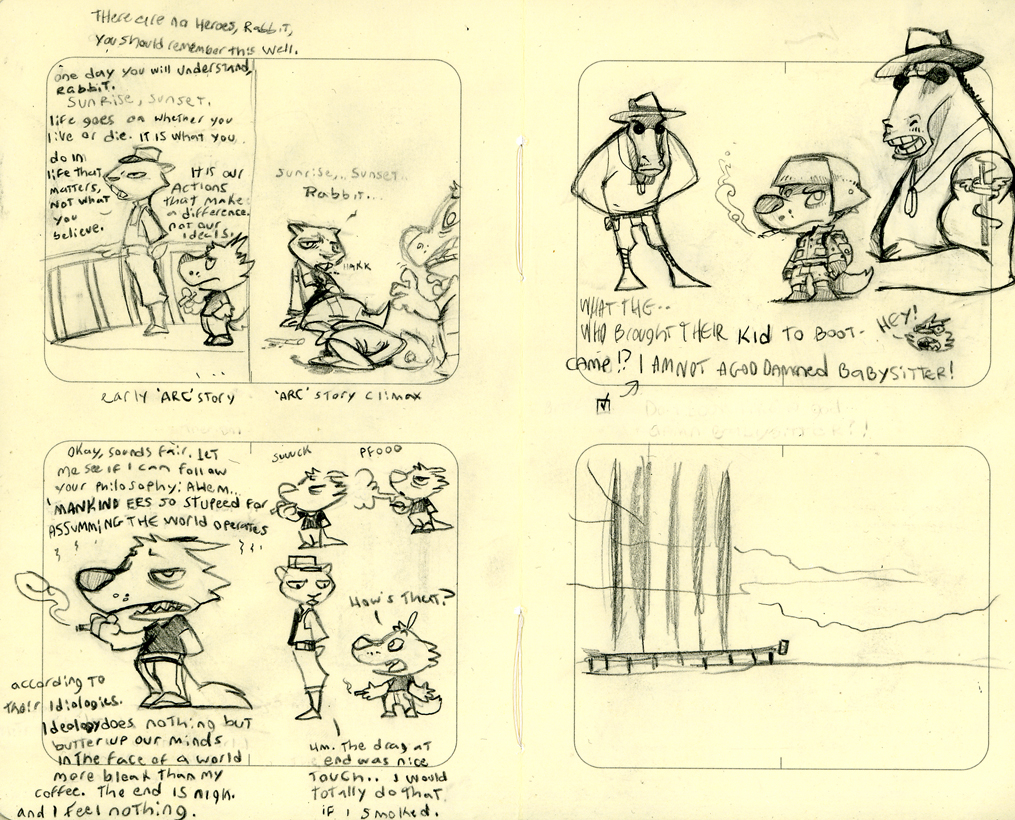 THere are no Heroes, Rabbit,
You should remember this well.
one day you will understand,
Rabbit.
Sunrise, Sunset.
life goes on whether you
live or die. It is what you
do in
life that
matters,
Not what
you
believe.
It is our
Actions
that make
a difference.
not our
ideals.
Sunrise... Sunset..
Rabbit...
HAKK
early 'ARC' story
'ARC' story climax
Okay, sounds fair. Let
me see if I can follow
your philosophy: Ahem...
'MANKIND EES SO STUPEED FOR
ASSUMMING THE WORLD OPERATES
according to
their Idiologies.
Ideology does nothing but
butter up our minds
in the face of a world
more bleak than my
coffee. The end is nigh.
and I feel nothing.
SUUCK
PFOOO
How's that?
Hm. The drag at
end was nice
Touch.. I would
totally do that
if I smoked.
WHAT THE--
WHO BROUGHT THEIR Kid TO BOOT-
CAMP!? I AM NOT A GOD DAMNED BABYSITTER!
HEY!